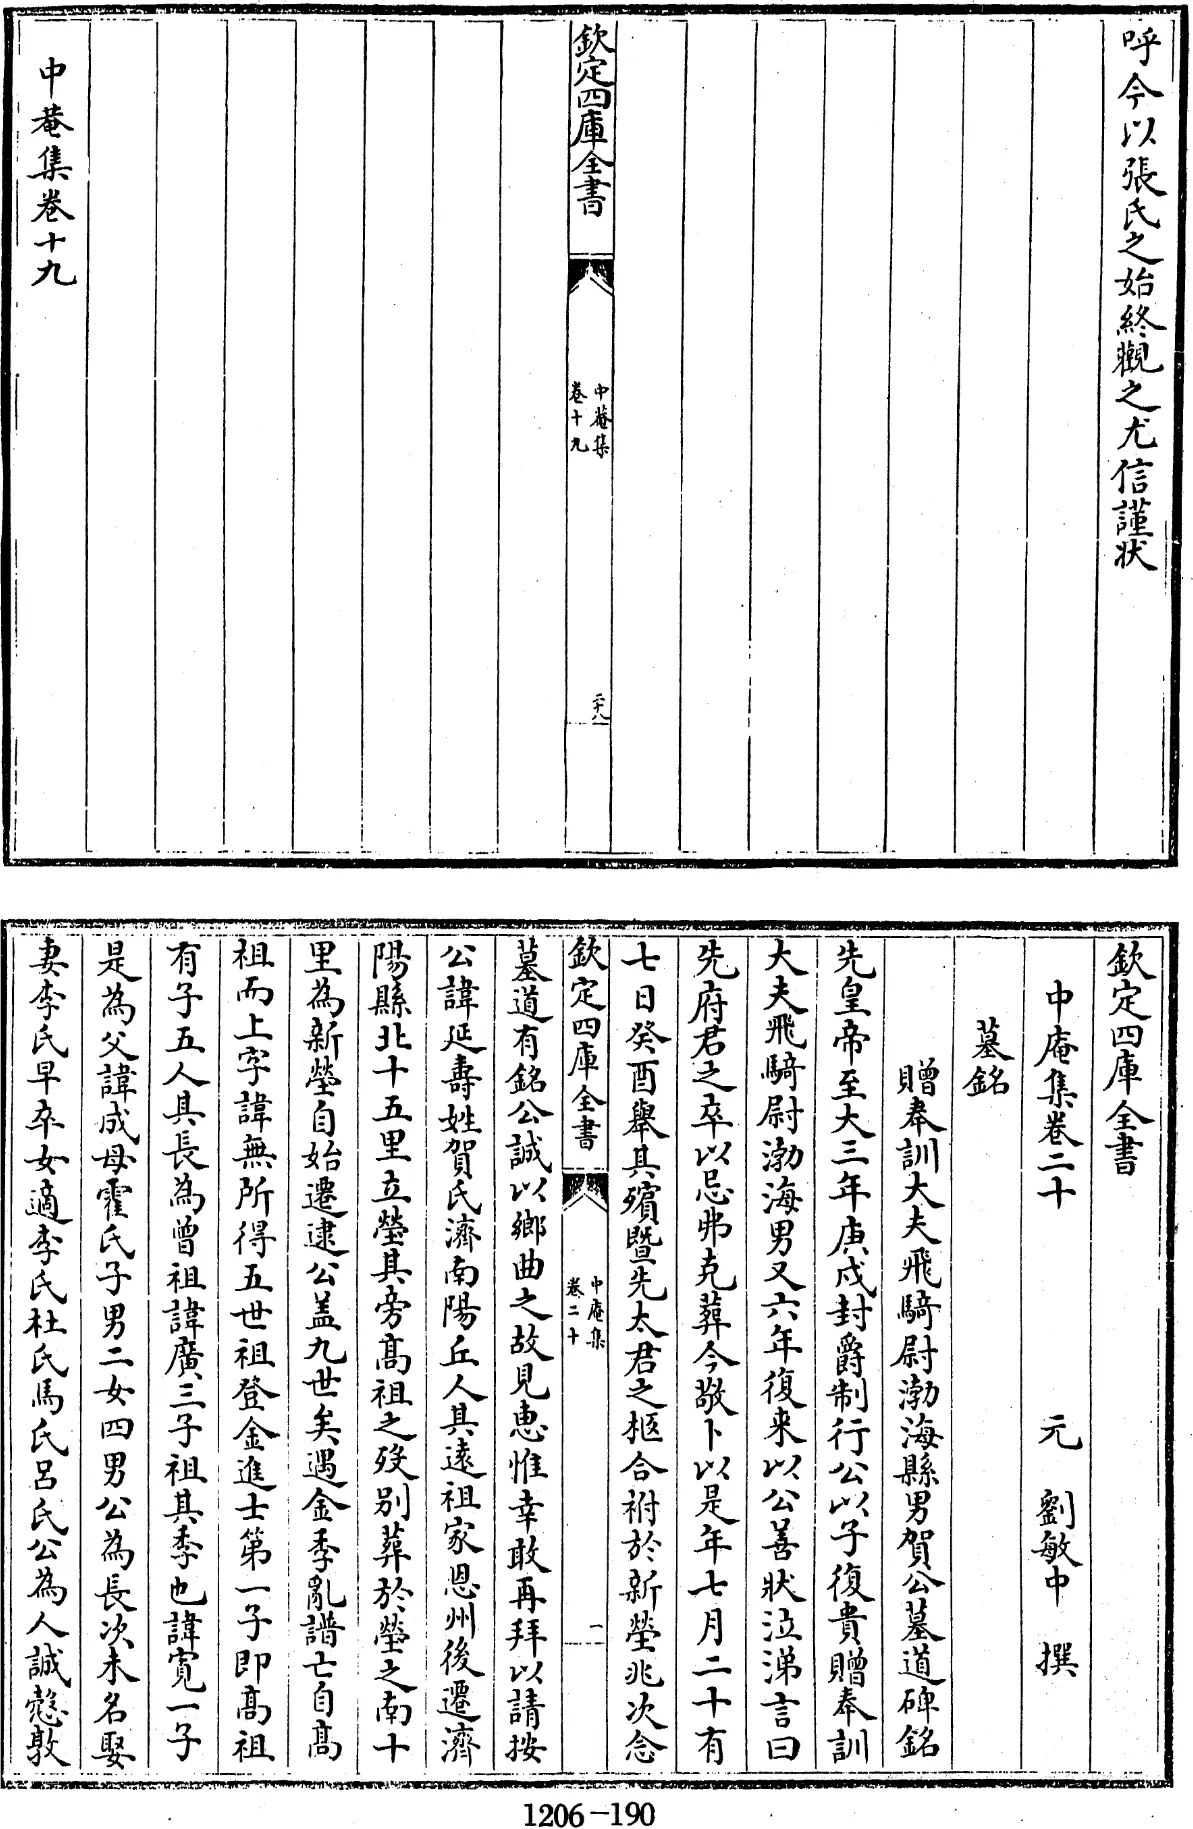 呼今以張氏之始終觀之尤信謹狀
欽定四庫全書
中菴集
卷十九
二十八
中菴集卷十九
欽定四庫全書
中庵集卷二十
元 劉敏中 撰
墓銘
贈奉訓大夫飛騎尉渤海縣男賀公墓道碑銘
先皇帝至大三年庚戌封爵制行公以子復貴贈奉訓
大夫飛騎尉渤海男又六年復来以公善狀泣涕言曰
先府君之卒以忌弗克葬今敬卜以是年七月二十有
七日癸酉舉其殯暨先太君之柩合祔於新塋兆次念
欽定四庫全書
中庵集
卷二十
一
墓道有銘公誠以鄉曲之故見惠惟幸敢再拜以請按
公諱延壽姓賀氏濟南陽丘人其遠祖家恩州後遷濟
陽縣北十五里立塋其旁髙祖之歿别葬於塋之南十
里為新塋自始遷逮公盖九世矣遇金季亂譜亡自髙
祖而上字諱無所得五世祖登金進士第一子即髙祖
有子五人其長為曾祖諱廣三子祖其季也諱寛一子
是為父諱成母霍氏子男二女四男公為長次未名娶
妻李氏早卒女適李氏杜氏馬氏吕氏公為人誠慤敦
1206-190